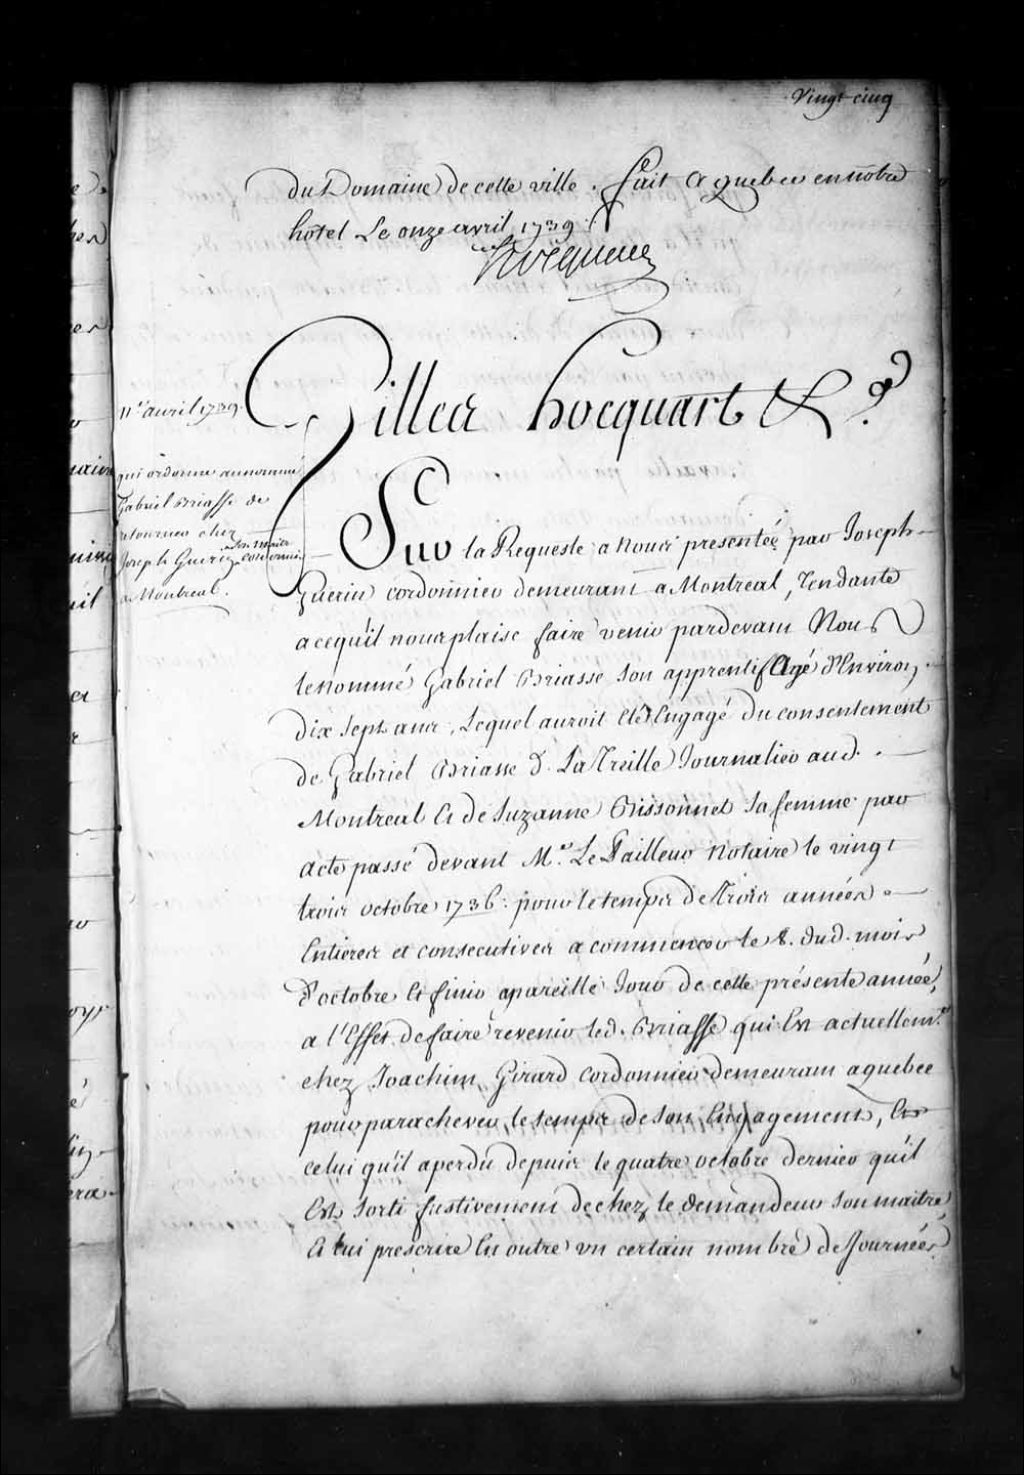 Vingt-cinq
du Domaine de cette ville. fait a quebec en notre
hotel Le onze avril 1739.
Hocquart
Gilles hocquart &c.ª
11.e avril 1739.
qui ordonne au nommé
Gabriel Briasse de
retourner chez
Joseph Guerin son maitre cordonnier
a Montreal.
Sur la Requeste a Nous presentée par Joseph
Guerin cordonnier demeurant a Montreal, Tendante
a cequ'il nous plaise faire venir pardevant Nous
le nommé Gabriel Briasse son apprentif Agé d'Environ
dix sept ans, Lequel auroit eté Engagé du consentement
de Gabriel Briasse d. La Treille Journalier aud.
Montreal Et de Suzanne Bissonnet sa femme par
acte passé devant M.e Le Pailleur Notaire le vingt
trois octobre 1736. pour le temps de Trois années
Entieres et consecutives a commencer le 8. dud. mois
d'octobre Et finir a pareille Jour de cette présente année,
a l'Effet de faire revenir led. Briasse qui Est actuellem.t
chez Joachim Girard cordonnier demeurant a quebec
pour parachever le temps de son Engagement, Et
celui qu'il a perdu depuis le quatre octobre dernier qu'il
Est sorti furtivement de chez le demandeur son maitre
Et lui prescrire En outre un certain nombre de Journées